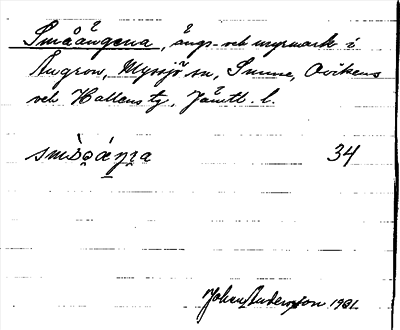 Småångerna, ängs- och myrmark i
Ångron, Myssjö sn, Sunne, Ovikens
och Hallens tg, Jämtl. l.
34
Johan Andersson 1931.